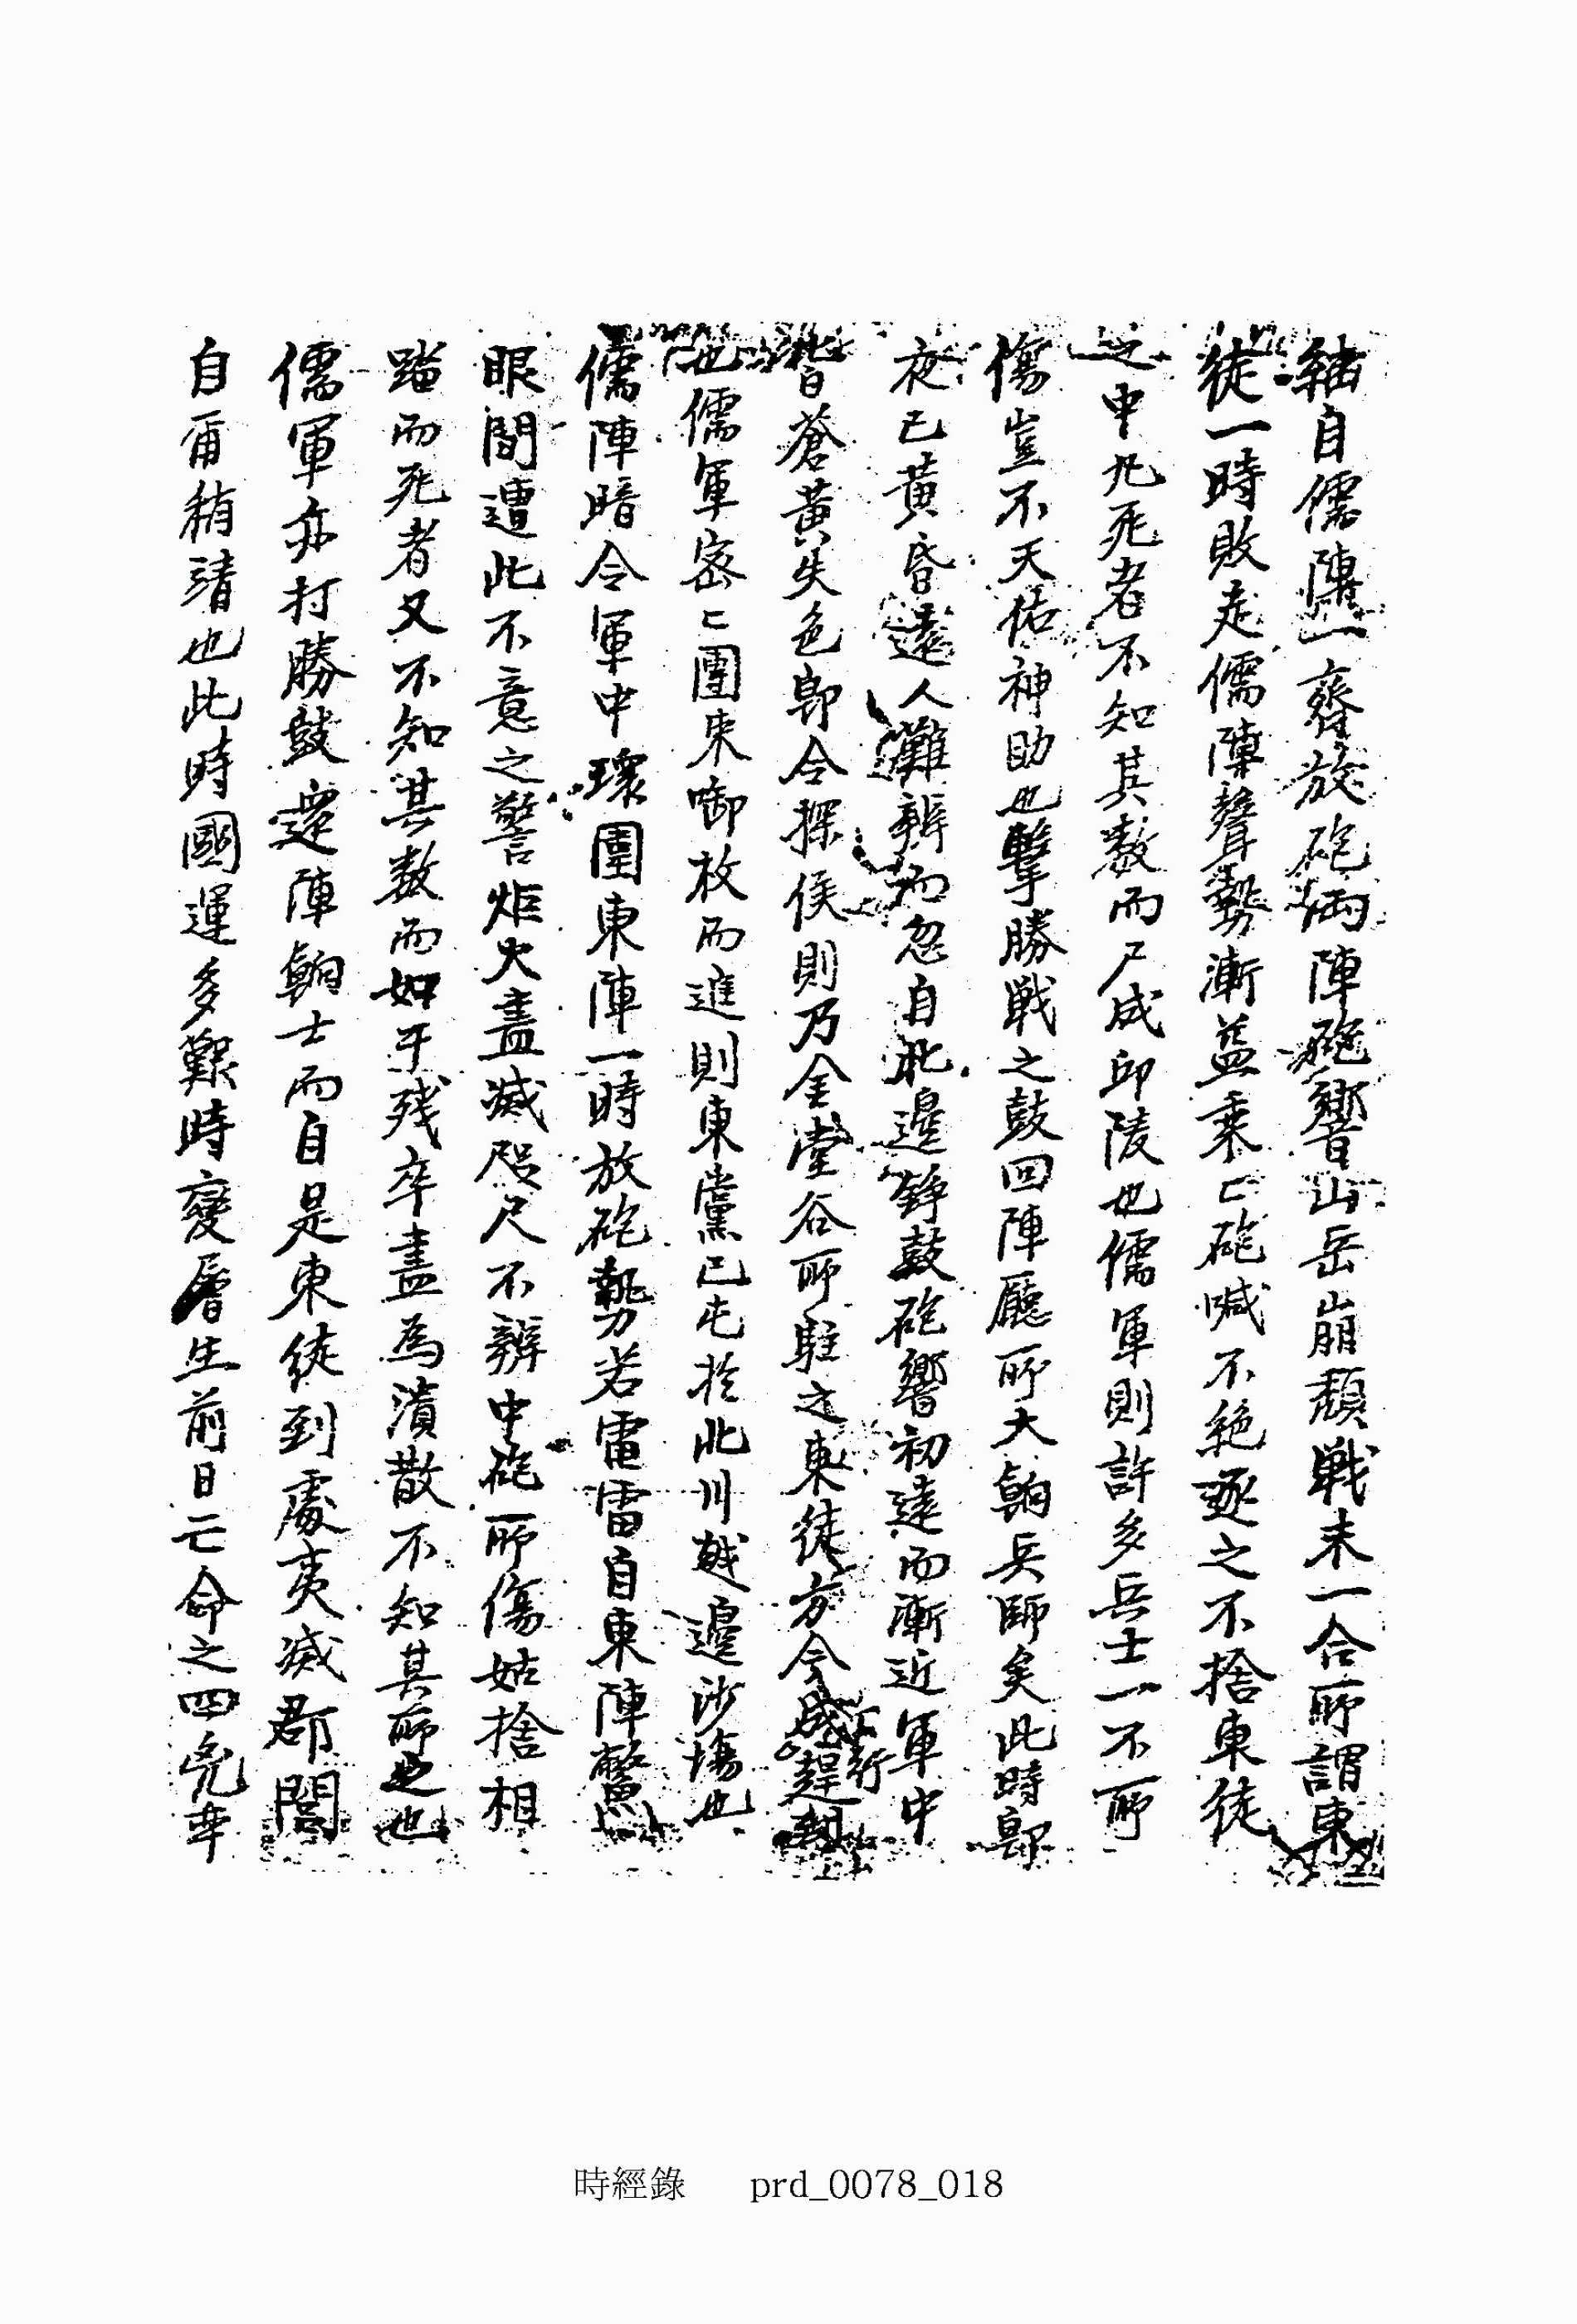 軸自儒陣一齊放砲両陣砲響山岳崩頹戰未一合所謂東
徒一時敗走儒陣聲勢漸益乘〻砲喊不絶逐之不捨東徒
之中丸死者不知其數而尸成邱陵也儒軍則許多兵士一不所
傷豈不天佑神助也擊勝戰之鼓回陣廳所大犒兵師矣此時卽
夜已黄昏遠人難辨而忽自北邊錚鼓砲響初遠而漸近軍中
皆蒼黄失色卽令探候則乃金堂谷所駐之東徒方今成行趕
也儒軍密〻團束啣枚而進則東黨已屯於北川越邊沙塲也
儒陣暗令軍中環圍東陣一時放砲勢若電雷自東陣驚
眼間遭此不意之警炬火盡滅咫尺不辨中砲所傷姑捨相
踏而死者又不知其數而如干残卒盡爲潰散不知其所之也
儒軍亦打勝鼓還陣犒士而自是東徒到處夷滅郡閭
自甫稍靖也此時國運多艱時變層生前日亡命之四兇幸
時經錄 prd_0078_018